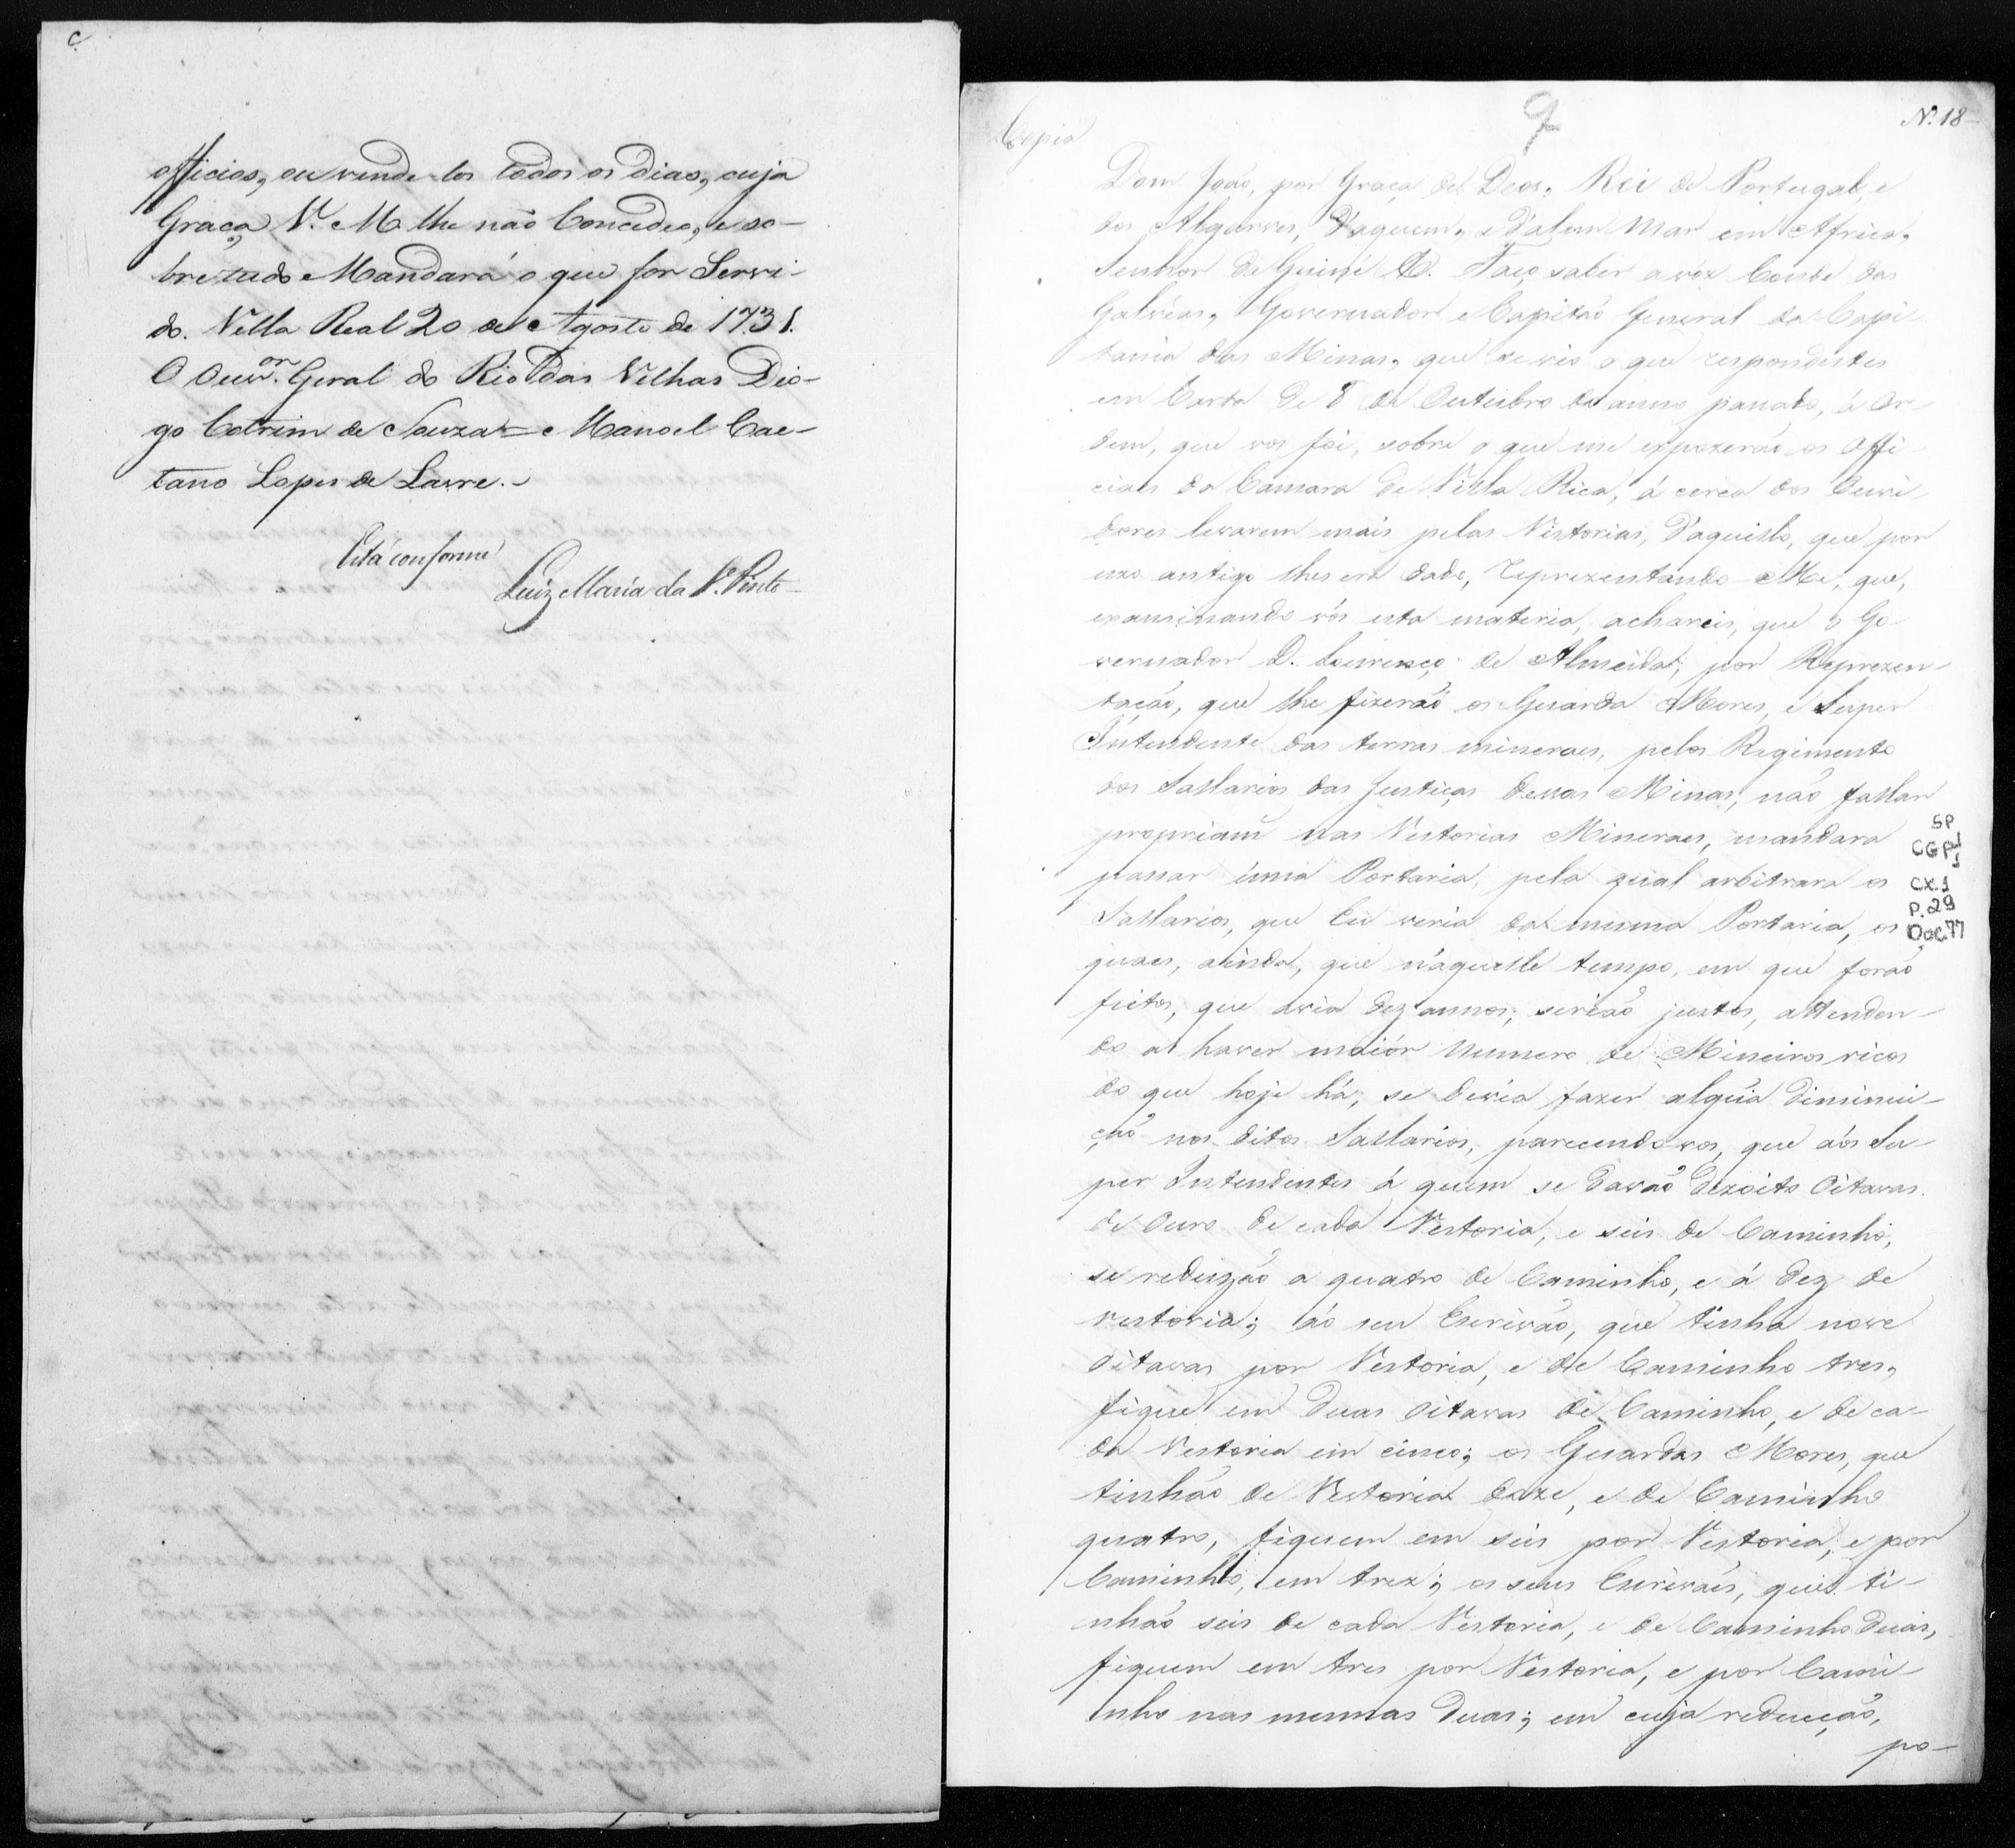 c
officios, ou vende-los todos os dias, cuja
Graça V. M. lhe não Concedeo, e so-
bre tudo Mandará o que for Servi-
do. Villa Real 20 de Agosto de 1731.
O Ouv.or Geral do Rio das Velhas Dio-
go Cotrim de Souza = Manoel Cae-
tano Lopes de Lavre. -
Está conforme
Luiz Maria da S.a Pinto
Copia
9
N. 18
Dom João, por Graça de Deos, Rei de Portugal, e
dos Algarves, D'aquem, e D'alem Mar em Africa,
Senhor de Guiné &. Faço saber a vóz Conde das
Galvéas, Governador e Capitão General da Capi
tania das Minas, que se vio o que respondestes
em Carta de 8 de Outubro do anno passado, á Or-
dem, que vos foi, sobre o que me expozerão os Offi
ciaes da Camara de Villa Rica, á cerca dos Ouvi
dores levarem mais pelas Vistorias, D'aquillo, que por
uzo antigo lhes era dado, Reprezentando-Me, que,
examinando vós esta materia, achareis, que o Go
vernador D. Lourenço de Almeida, por Reprezen-
tação, que lhe fizerão os Guarda Mores, e Super
Intendente das terras mineraes, pelos Regimento
dos Sallarios das Justiças dessas Minas, não fallar
propriam nas Vestorias Mineraes, mandara
passar úma Portaria, pela qual arbitrara os
Sallarios, que Eu veria da mesma Portaria, os
quaes, ainda, que n'aquelle tempo, em que forão
feitos, que avia dez annos, serião justos, attenden-
do a haver maiór numero de Mineiros ricos
do que hoje há, se devia fazer algúa diminui-
ção nos ditos Sallarios, parecendo vos, que aós Su-
per Intendentes á quem se davão dezoito Oitavas
de Ouro de cada Vestoria, e seis de Caminho,
se reduzão a quatro de Caminho, e á dez de
vestoria; áo seu Escrivão, que tinha nove
Oitavas por Vestoria, e de Caminho tres,
fique em duas Oitavas de Caminho, e de ca-
da Vestoria em cinco; os Guardas Mores, que
tinhão de Vestoria doze, e de Caminho
quatro, fiquem em seis por Vestoria, e por
Caminho, em trez; os seus Escrivães, que ti-
nhão seis de cada Vestoria, e de Caminho duas,
fiquem em tres por Vestoria, e por Cami
nho nas mesmas duas; em cuja reducção,
po-
SP
CGP
CX.1
P.29
Doc.77